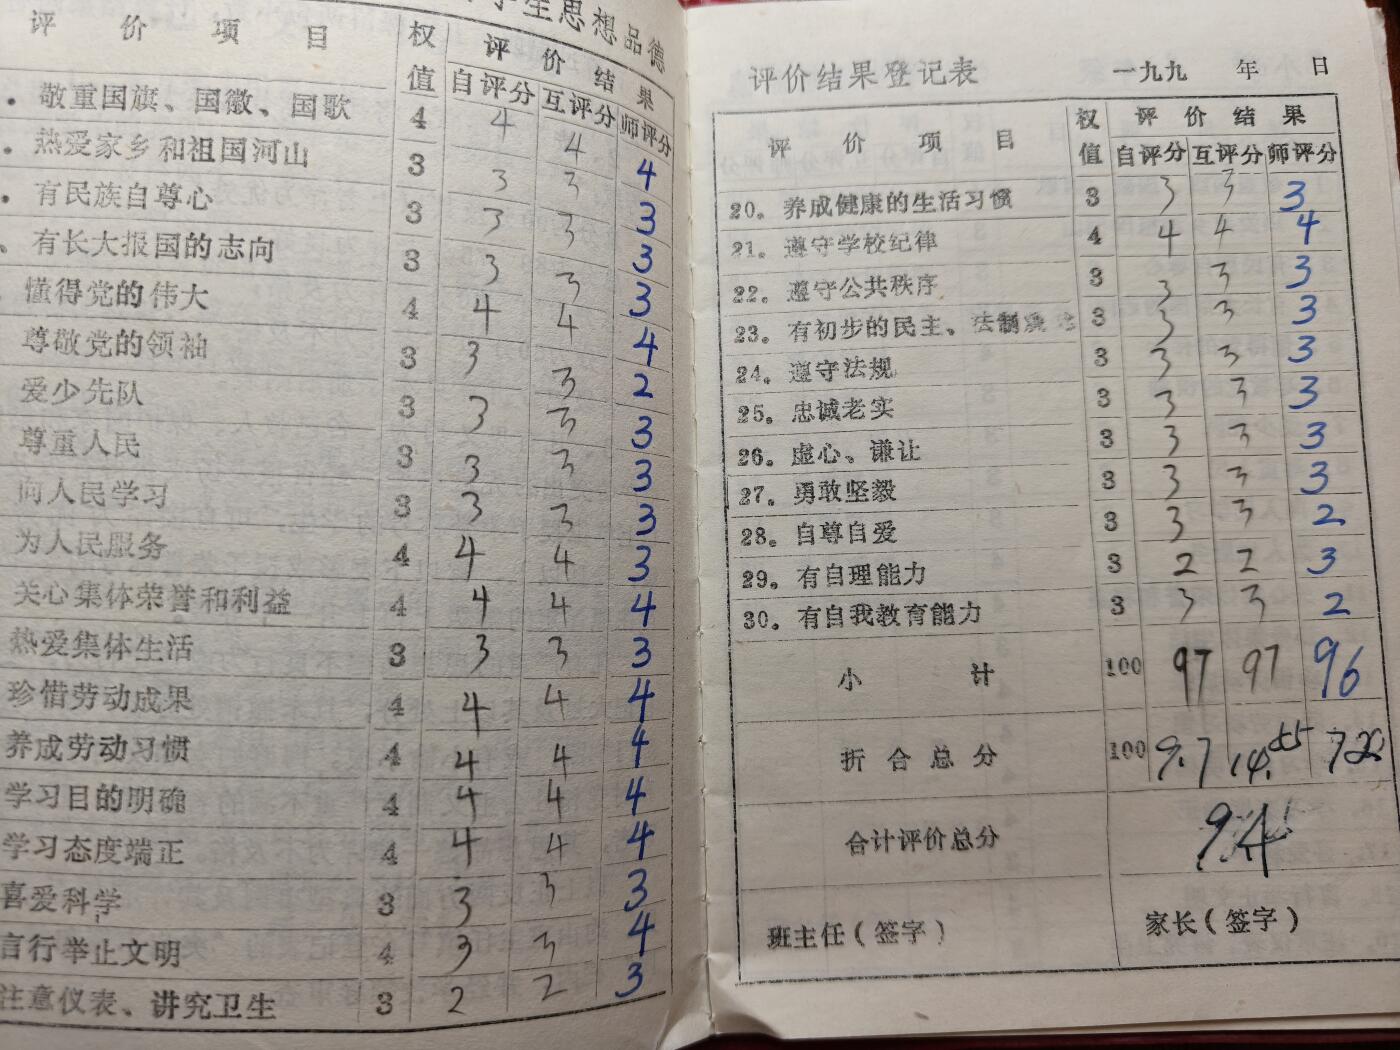 学生思想品德
评价项目 权值 评价结果
自评分 互评分 师评分
敬重国旗、国徽、国歌 4 4 4 4
热爱家乡和祖国河山 3 3 3 3
有民族自尊心 3 3 3 3
有长大报国的志向 3 3 3 3
懂得党的伟大 4 4 4 4
尊敬党的领袖 3 3 3 2
爱少先队 3 3 3 3
尊重人民 3 3 3 3
向人民学习 3 3 3 3
为人民服务 4 4 4 3
关心集体荣誉和利益 4 4 4 4
热爱集体生活 3 3 3 3
珍惜劳动成果 4 4 4 4
养成劳动习惯 4 4 4 4
学习目的明确 4 4 4 4
学习态度端正 4 4 4 4
喜爱科学 3 3 3 3
言行举止文明 4 3 3 4
注意仪表、讲究卫生 3 2 2 3
评价结果登记表 一九九 年 日
评价项目 权值 评价结果
自评分 互评分 师评分
20。养成健康的生活习惯 3 3 3 3
21。遵守学校纪律 4 4 4 4
22。遵守公共秩序 3 3 3 3
23。有初步的民主、法制 3 3 3 3
24。遵守法规 3 3 3 3
25。忠诚老实 3 3 3 3
26。虚心、谦让 3 3 3 3
27。勇敢坚毅 3 3 3 3
28。自尊自爱 3 3 3 2
29。有自理能力 3 2 2 3
30。有自我教育能力 3 3 3 2
小计 100 97 97 96
折合总分 100 9.7 14.55
合计评价总分
班主任（签字） 家长（签字）